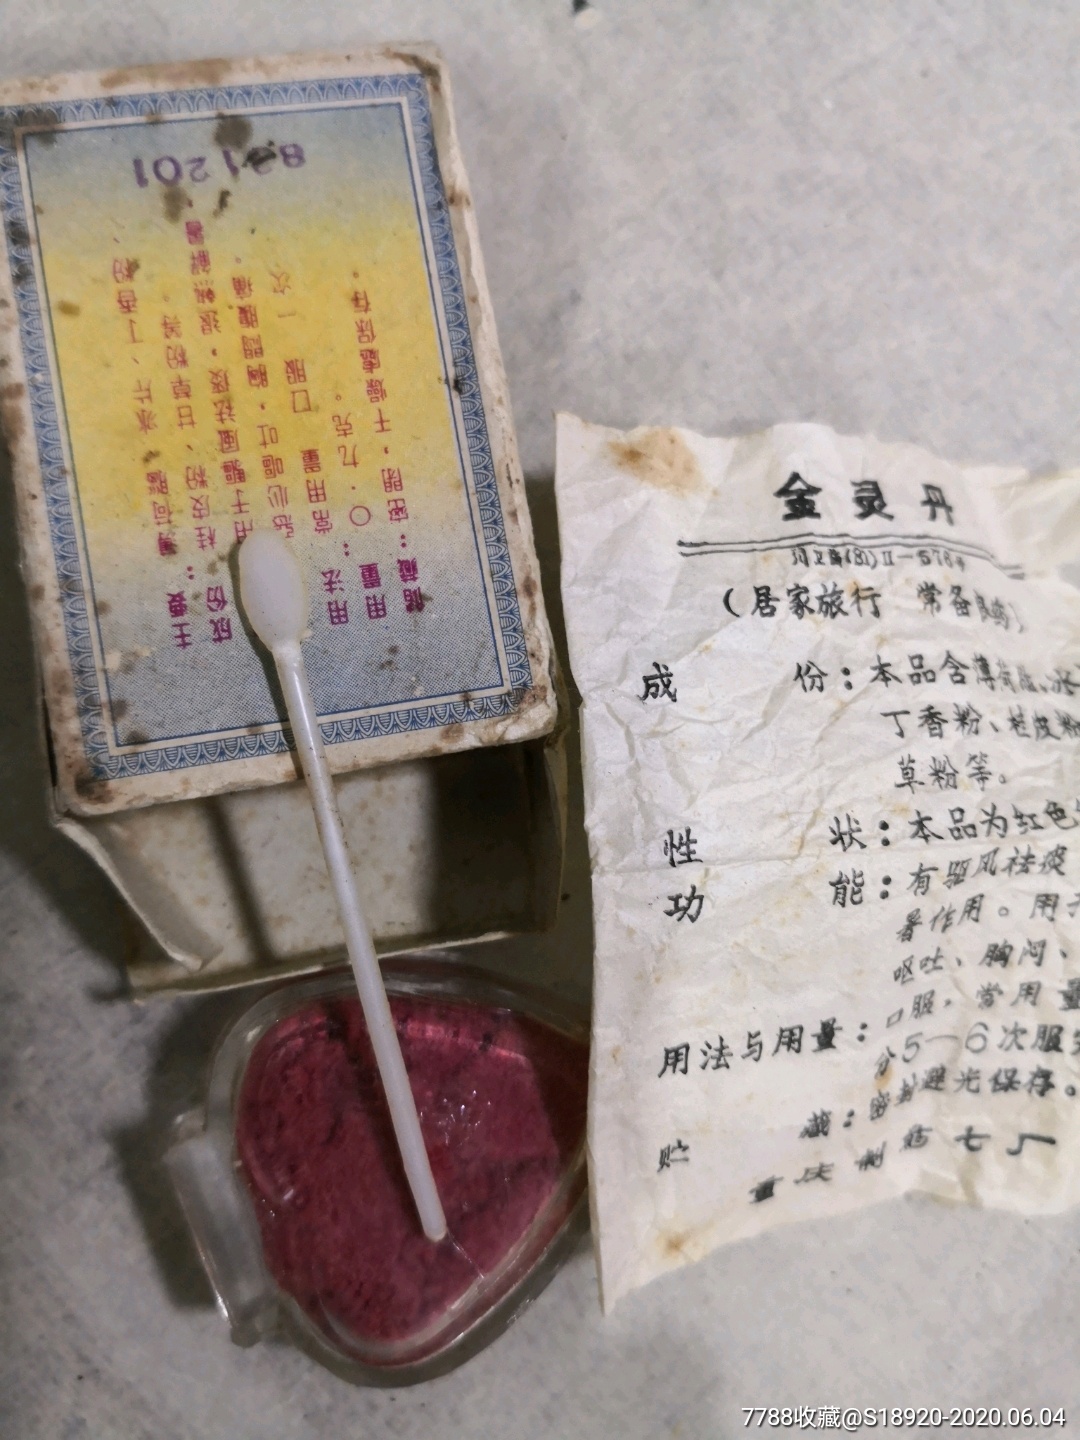 831201
主要：薄荷腦、冰片、丁香粉、
成份：桂皮粉、甘草粉等。
用于驅風祛痰，退熱解暑，
惡心嘔吐，胸悶腹痛。
用法：常用量 口服 一次
用量：〇·九克。
儲藏：密閉，干燥處保存。
金灵丹
(81)Ⅱ—5764
（居家旅行 常备良药）
成 份：本品含薄荷脑、冰
丁香粉、桂皮粉
草粉等。
性 状：本品为红色
功 能：有驱风祛痰
暑作用。用于
呕吐、胸闷、
用法与用量：口服，常用量
分5—6次服
贮 藏：密封避光保存。
重庆制药七厂
7788收藏@S18920-2020.06.04